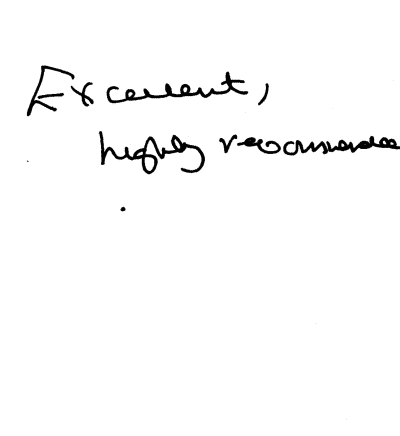 Excellent,
highly recommended